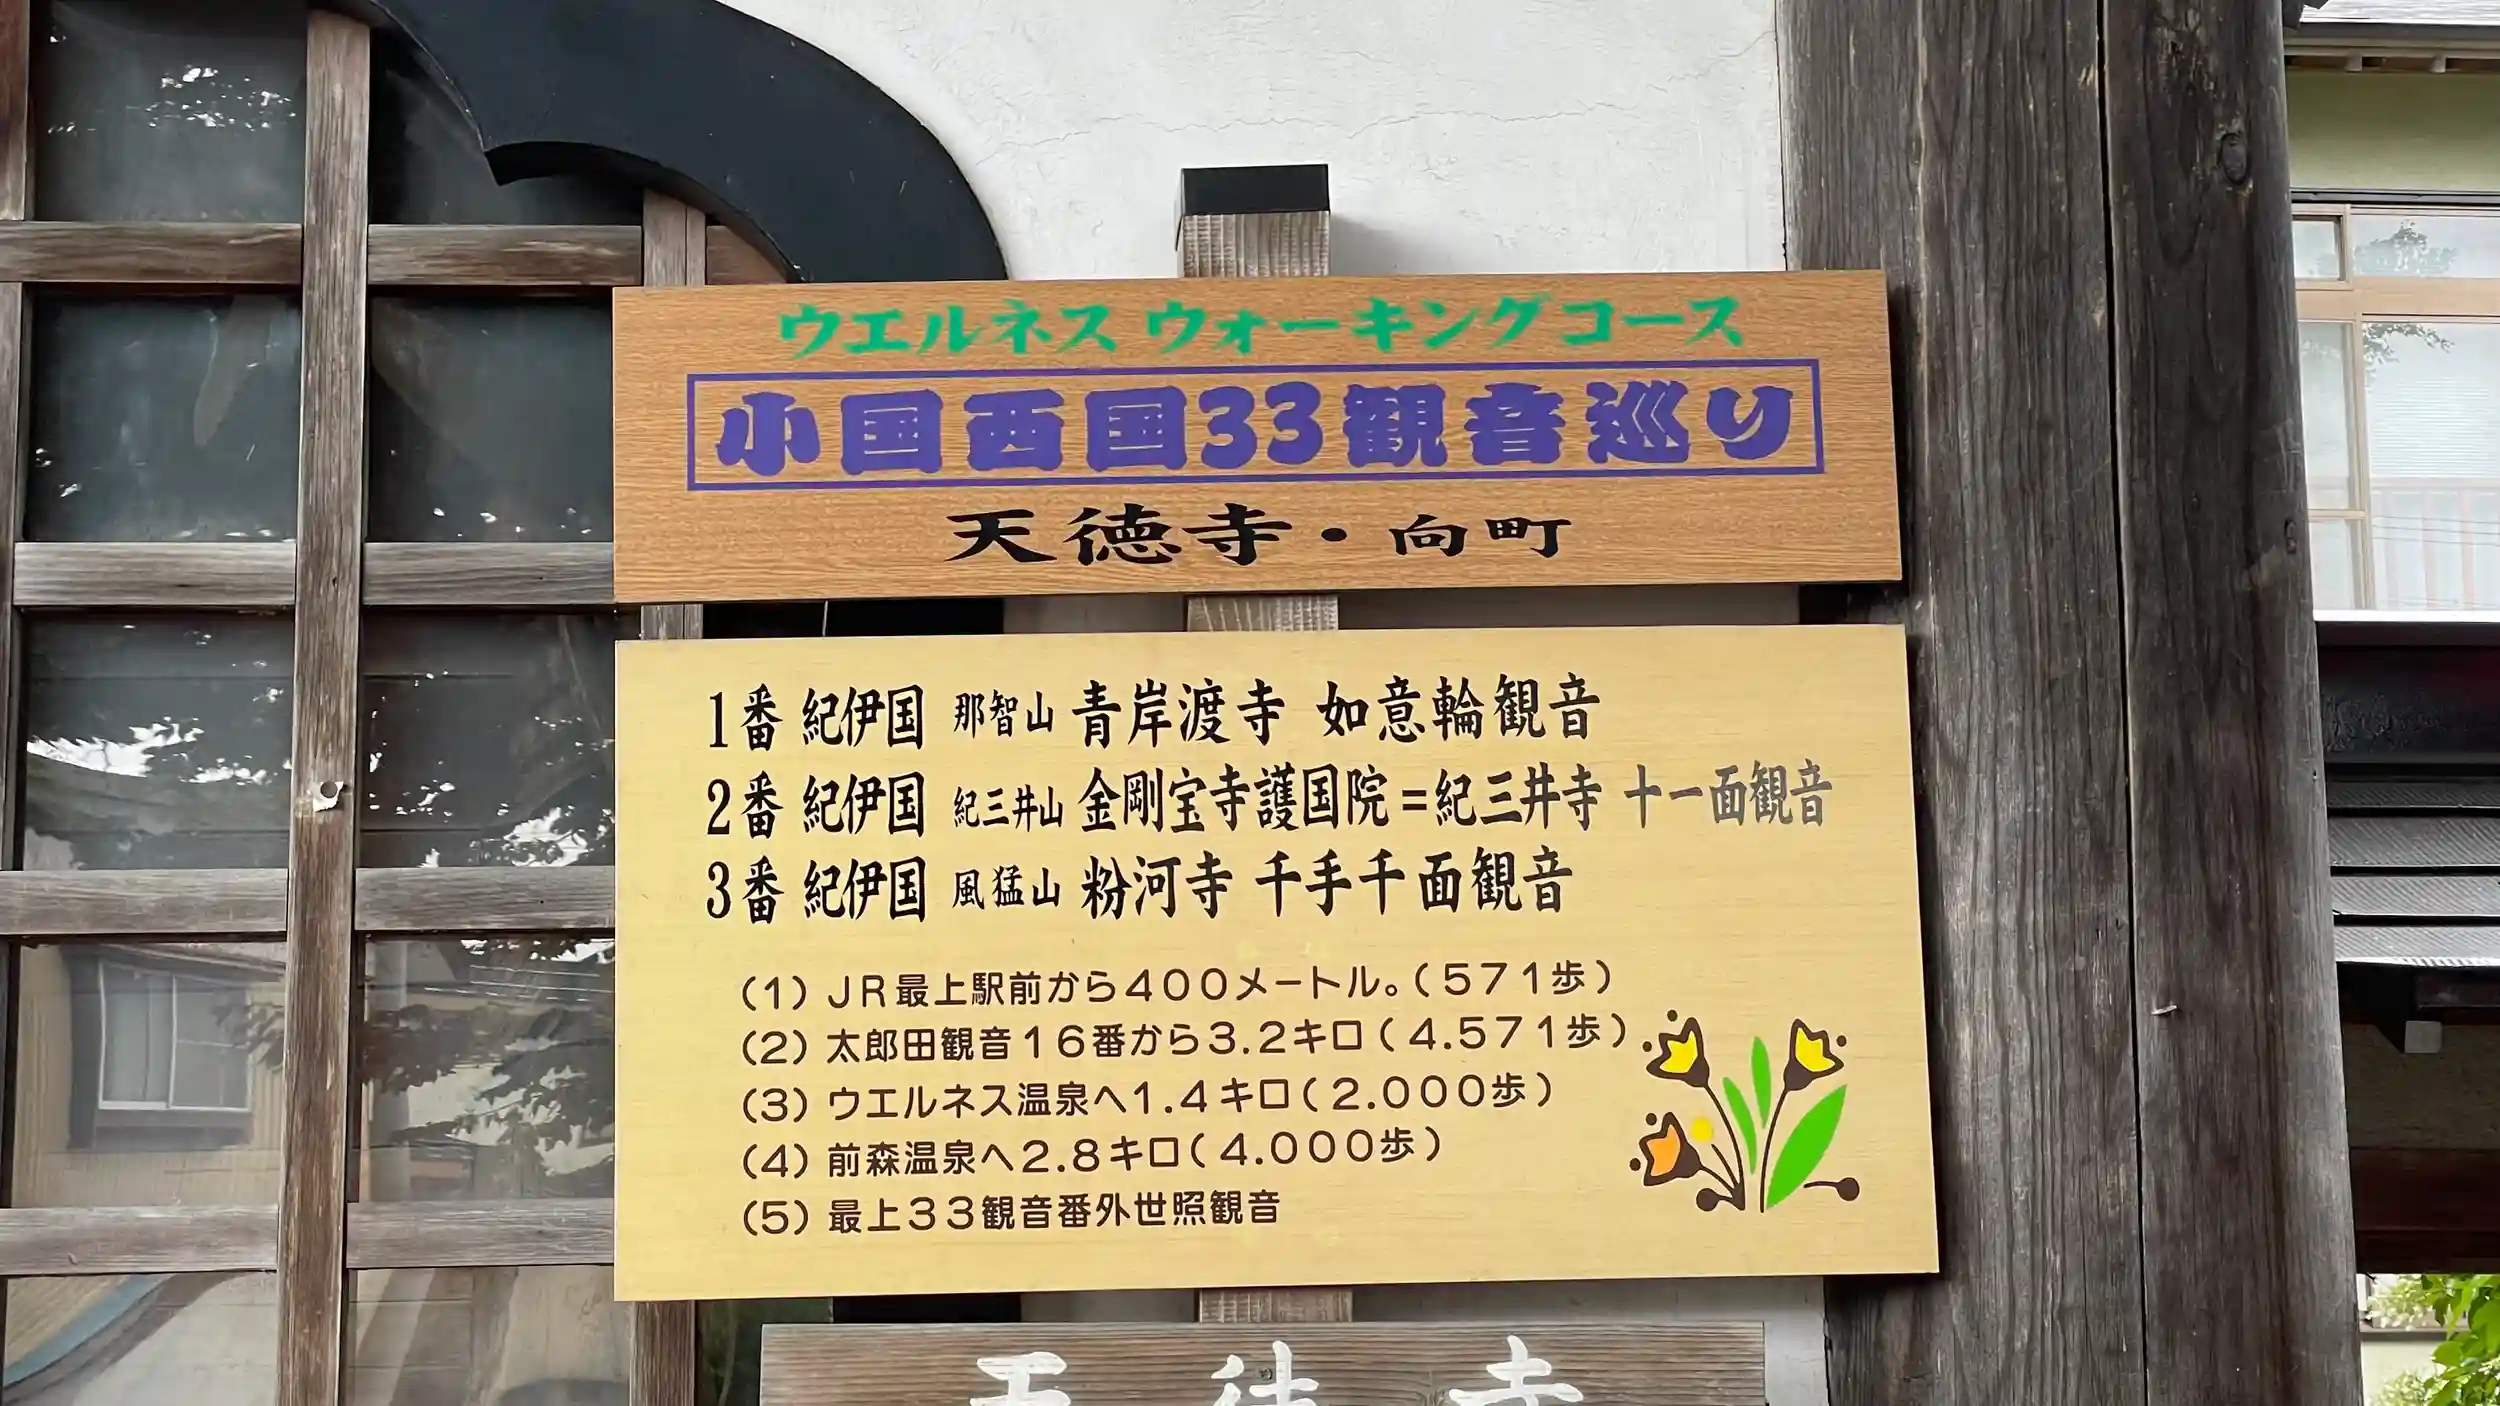 ウエルネス ウォーキングコース
小国西国33観音巡り
天徳寺・向町
1番 紀伊国 那智山 青岸渡寺 如意輪観音
2番 紀伊国 紀三井山 金剛宝寺護国院=紀三井寺 十一面観音
3番 紀伊国 風猛山 粉河寺 千手千面観音
(1) JR最上駅前から400メートル。(571歩)
(2) 太郎田観音16番から3.2キロ(4.571歩)
(3) ウエルネス温泉へ1.4キロ(2.000歩)
(4) 前森温泉へ2.8キロ(4.000歩)
(5) 最上33観音番外世照観音
天徳寺